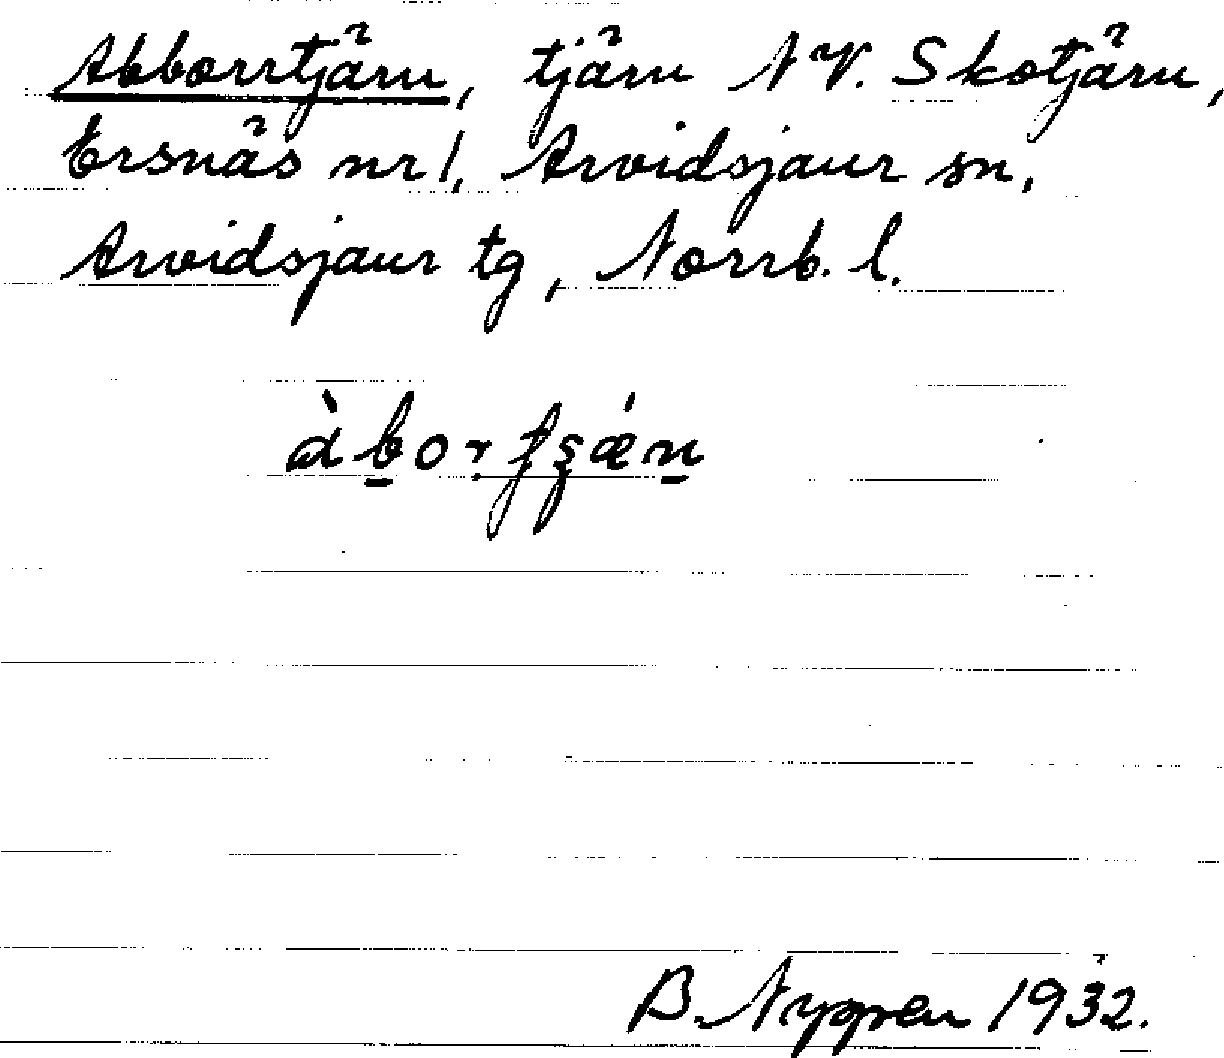 Abborrtjärn, tjärn NV. Skotjärn,
Ersnäs nr 1, Arvidsjaur sn,
Arvidsjaur tg, Norrb. l.
B. Nyppen 1932.